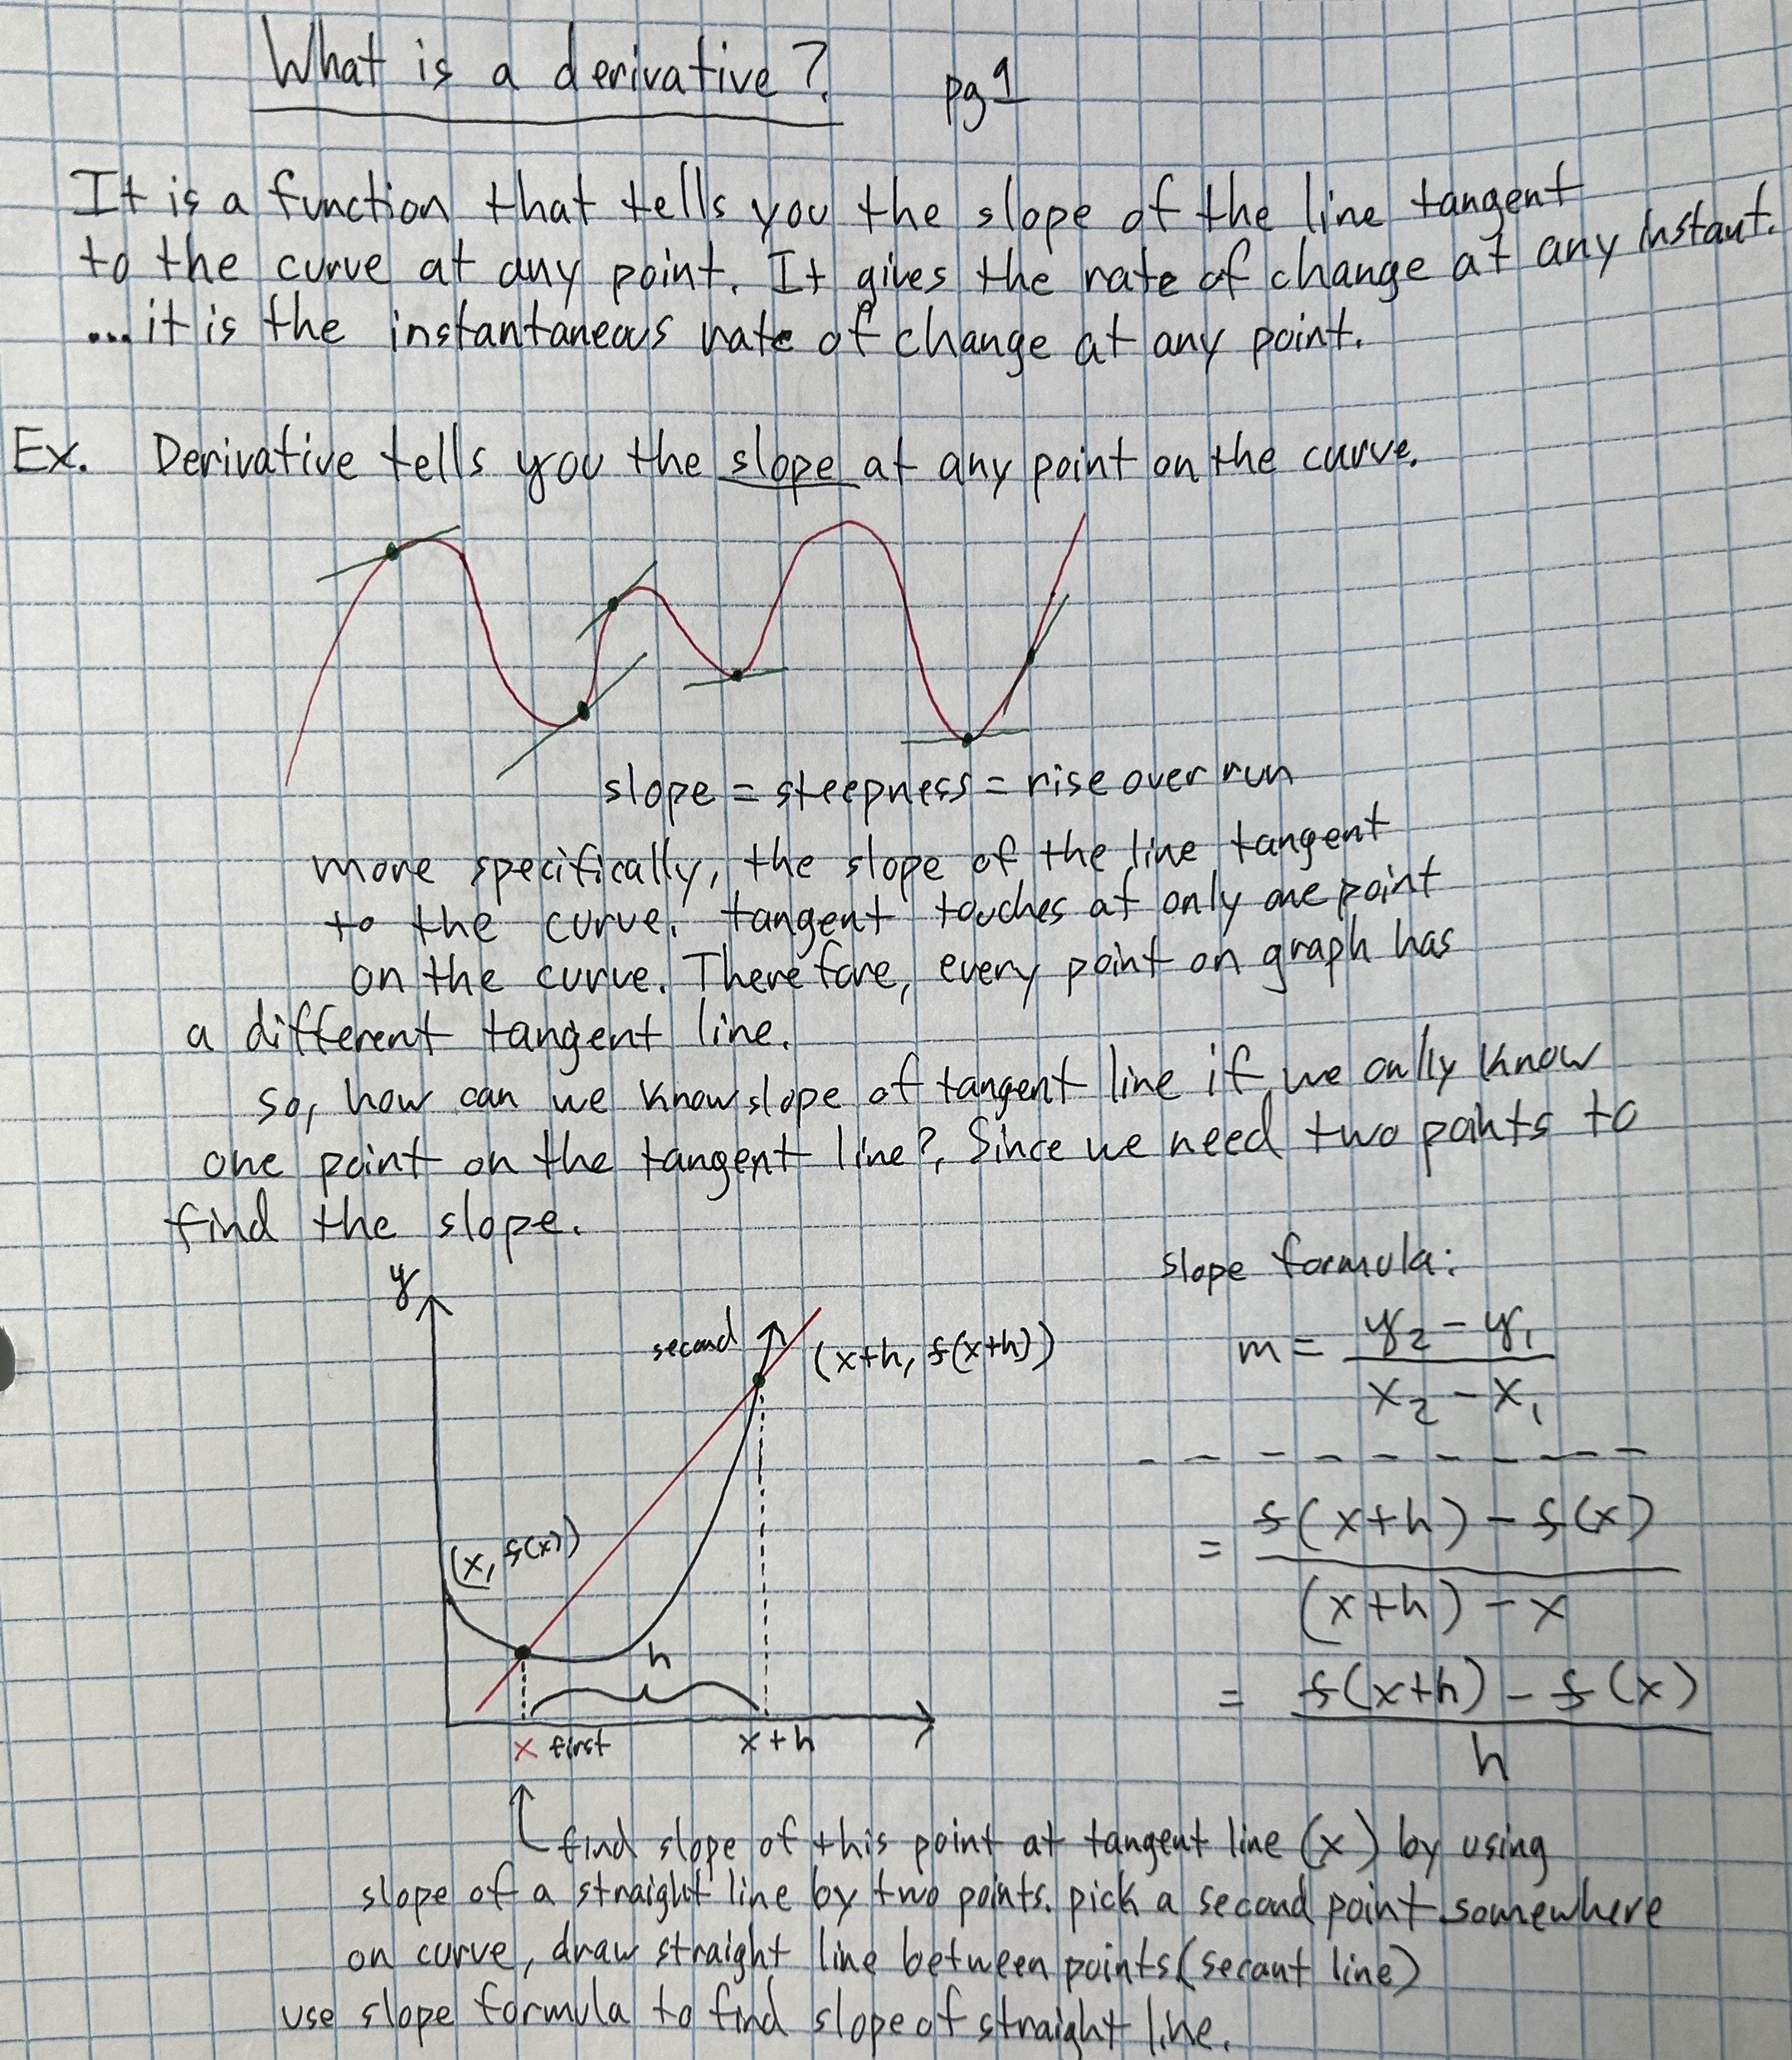 What is a derivative? pg 1
It is a function that tells you the slope of the line tangent
to the curve at any point. It gives the rate of change at any instant.
...it is the instantaneous rate of change at any point.
Ex. Derivative tells you the slope at any point on the curve.
slope = steepness = rise over run
more specifically, the slope of the line tangent
to the curve. tangent touches at only one point
on the curve. Therefore, every point on graph has
a different tangent line.
so, how can we know slope of tangent line if we only know
one point on the tangent line?, Since we need two points to
find the slope.
y
second
(x+h, f(x+h))
(x, f(x))
h
x first x+h
slope formula:
m = y₂ - y₁
x₂ - x₁
= f(x+h) - f(x)
(x+h) - x
= f(x+h) - f(x)
h
find slope of this point at tangent line (x) by using
slope of a straight line by two points. pick a second point somewhere
on curve, draw straight line between points (secant line)
use slope formula to find slope of straight line.